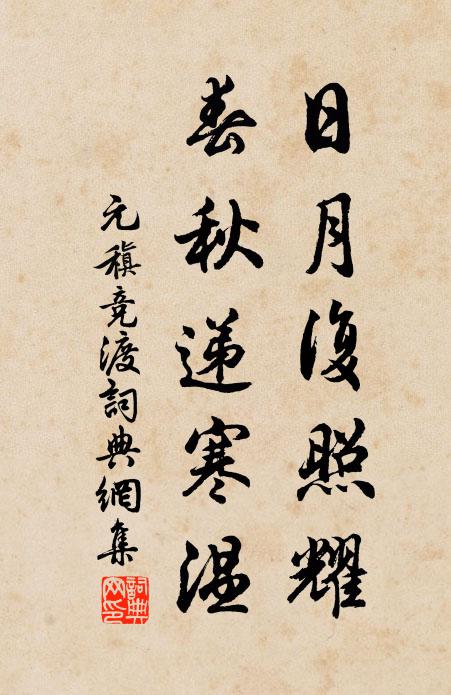 日月復照耀
春秋遞寒温
元稹竞渡詞典網集
詞典網印